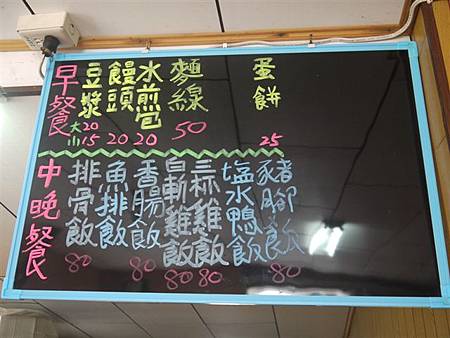 早餐
豆漿 大20 小15
饅頭 20
水煎包 20
麵線 50
蛋餅 25
中晚餐
排骨飯 80
魚排飯
香腸飯 80
白斬雞飯 80
三杯雞飯 80
塩水鴨飯
豬腳飯 80